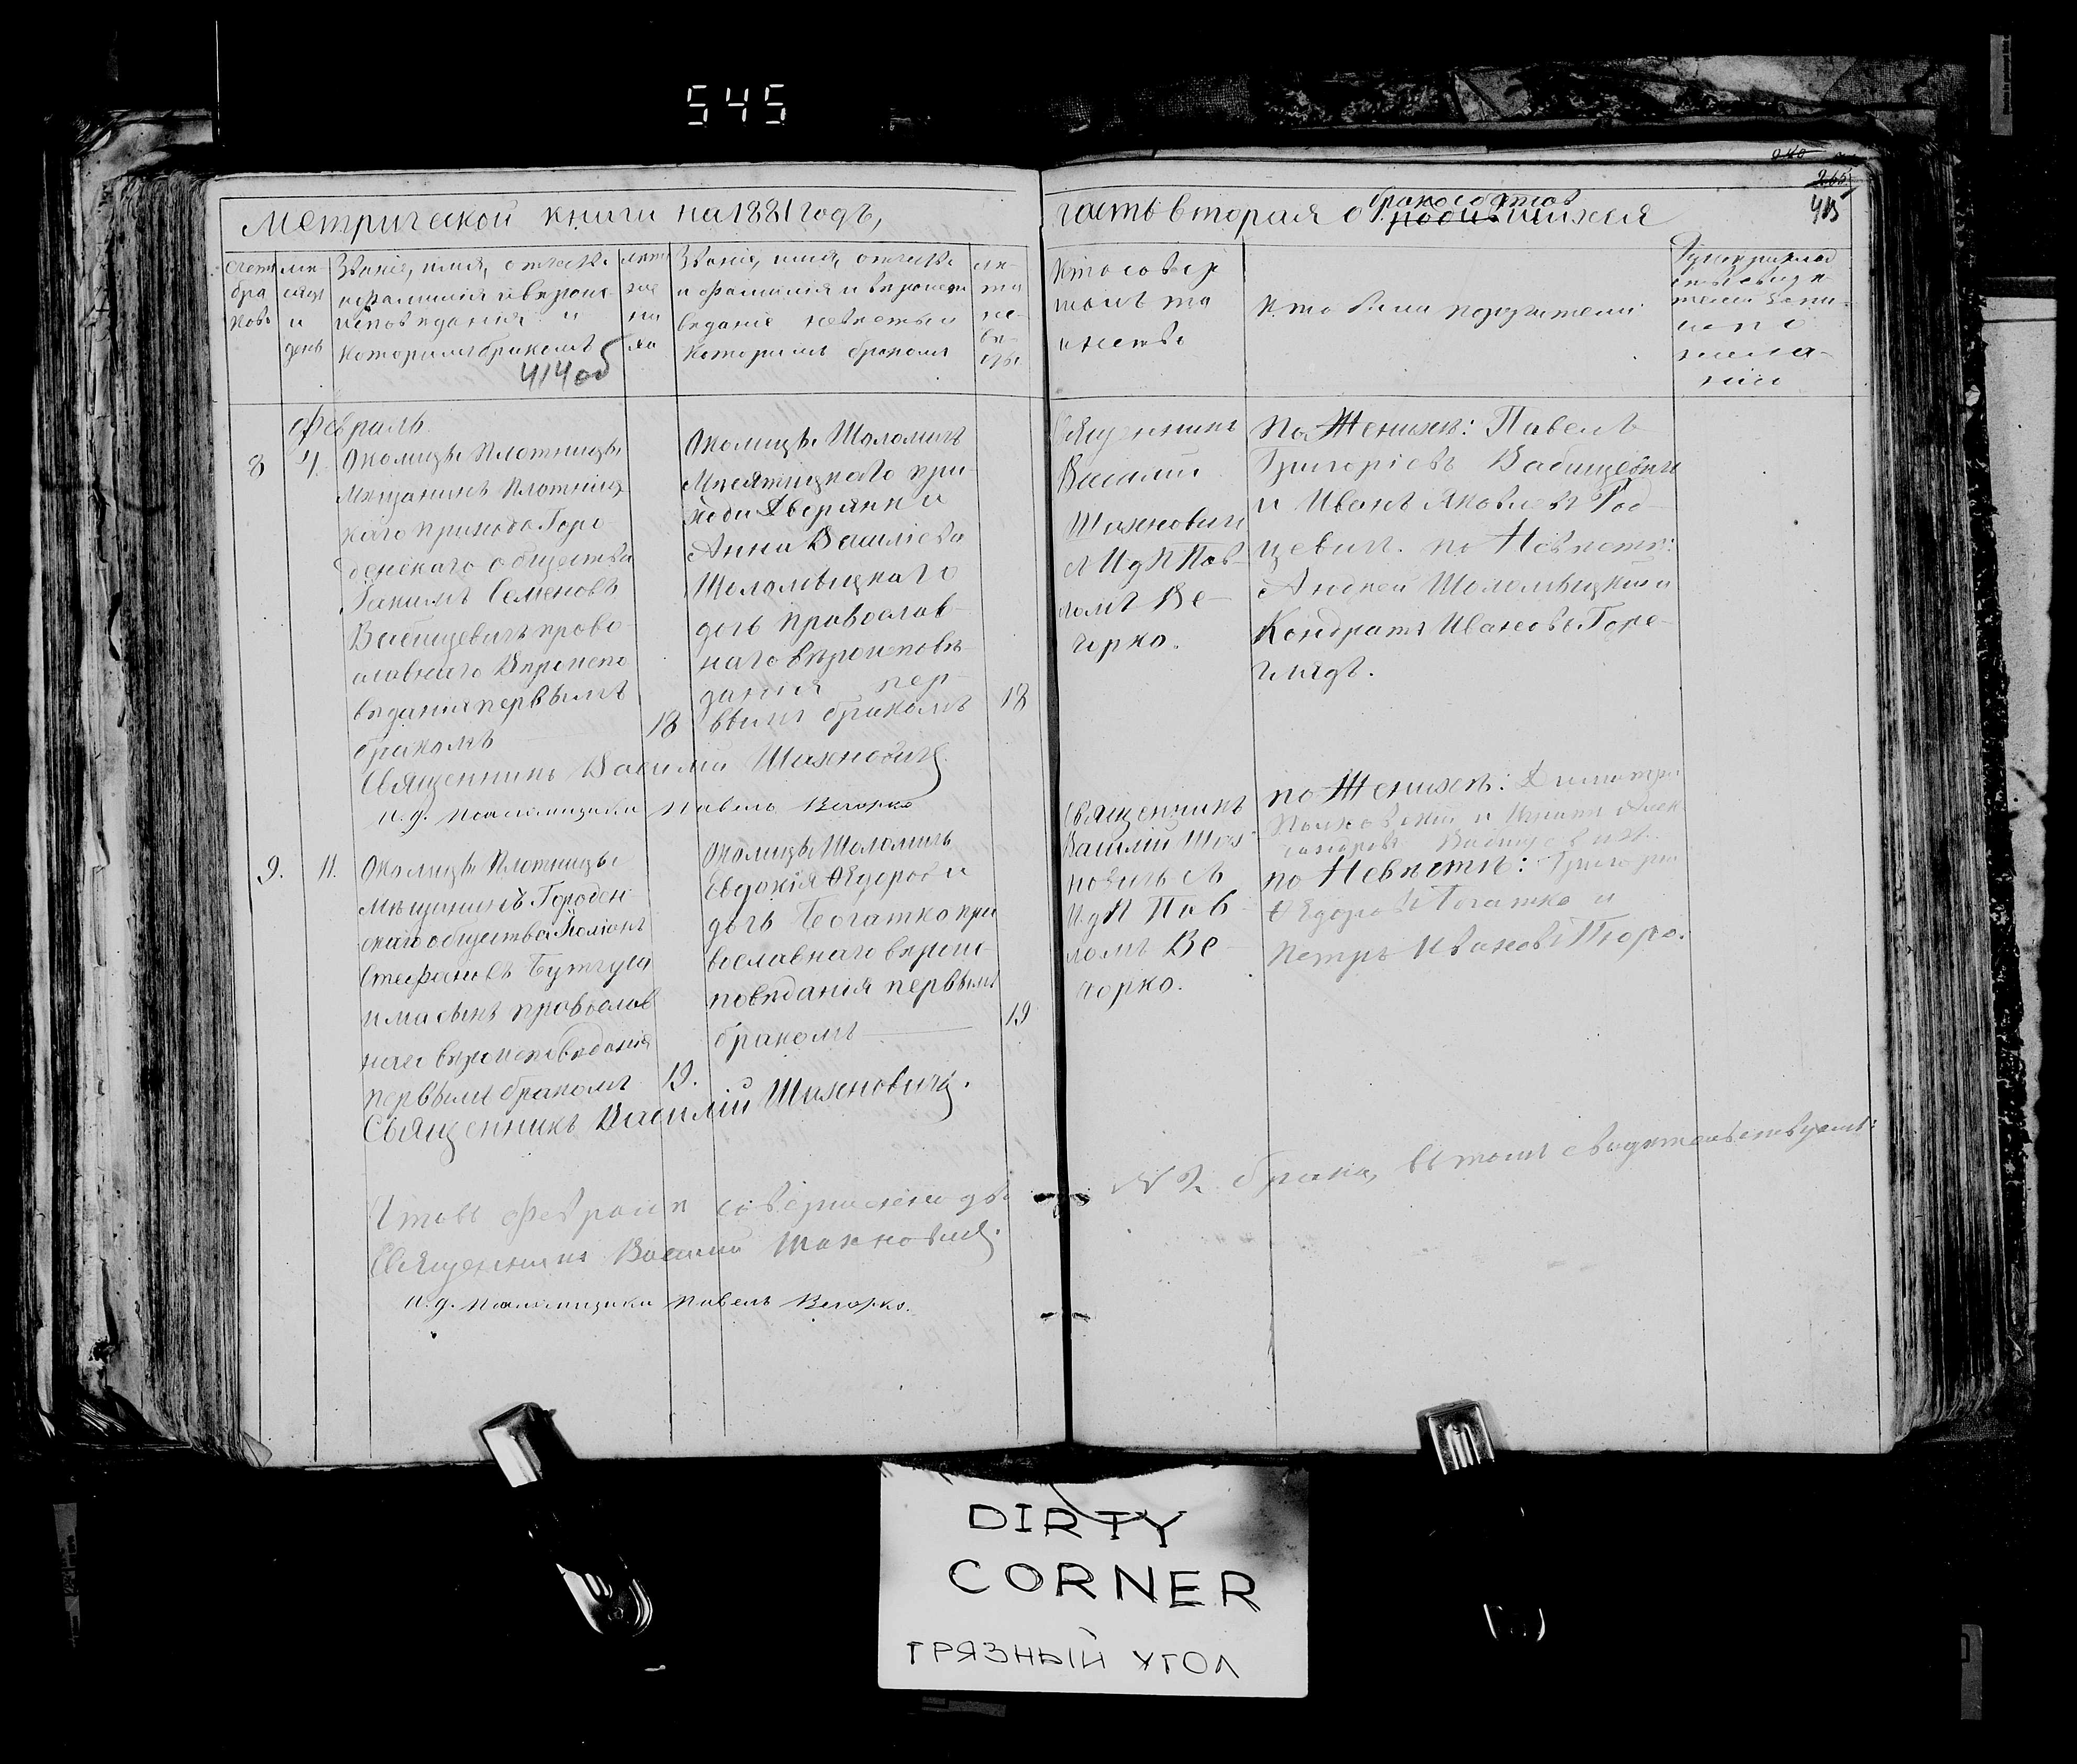 545
Метрической книги на 1881 годъ,
часть вторая о бракосочтав родившихся
413
265
Счетъ браковъ
месяцъ и день
Званіе, имя, отчество и фамилія и вероисповеданія и которымъ бракомъ
414 об
лета жениха
Званіе, имя, отчество и фамилія и вероисповеданіе невесты и которымъ бракомъ
лета невесты
Кто совершалъ таинство
Кто были поручители
Февраль
8
4.
Околицы Плотницы
мещанинъ Плотниц
каго прихода Горо
денскаго общества
Іакимъ Семеновъ
Вабищевичъ право
славнаго вероиспо
веданія первымъ
бракомъ
18
Околицы Шоломичъ
при
хода дворянка
Анна Василіева
Шоломицкаго
дочь православ
наго вероисповѣ
данія пер
вымъ бракомъ
18
Священникъ
Василій
Шахновичъ
съ И д П Пав
ломъ Ве
чорко.
По Женихѣ: Павелъ
Григоріевъ Вабищевичъ
и Иванъ Яковлевъ Род
цевич. по Невестѣ:
Андрей Шоломицкій и
Кондратъ Ивановъ Горе
глядъ.
Священникъ Василій Шахновичъ
и. д. Псаломщика Павелъ Вечорко
9.
11.
Околицы Плотницы
мещанинъ Городен
скаго общества
Стефановъ
сынъ православ
наго вероисповеданія
первымъ бракомъ
19.
Околицы Шоломичъ
Евдокія Ѳедорова
дочь Богатко пра
вославнаго вероис
поведанія первымъ
бракомъ
19
Священникъ
Василій Шах
новичъ съ
И д П Пав
ломъ Ве
чорко.
по Женихѣ: Димитрій
по Невестѣ: Григорій
Ѳедоровъ Богатко и
Петръ Ивановъ Пюро.
Священникъ Василій Шахновичъ.
Итого въ Феврале совершено два
№ 2 брака, въ томъ свидетельствуемъ:
Священникъ Василій Шахновичъ.
и. д. Псаломщика Павелъ Вечорко.
DIRTY
CORNER
ГРЯЗНЫЙ УГОЛ